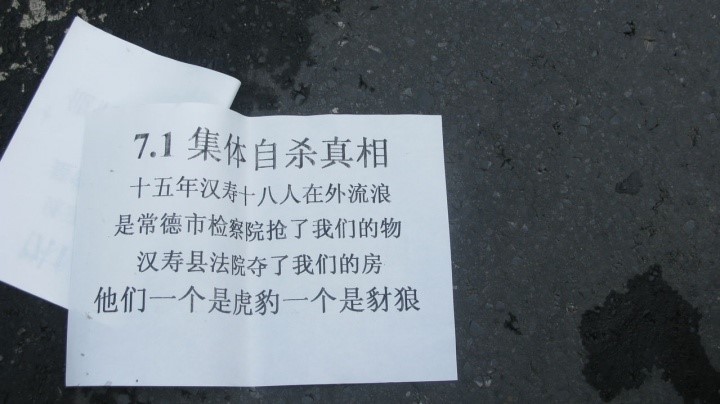 7.1 集体自杀真相
十五年汉寿十八人在外流浪
是常德市检察院抢了我们的物
汉寿县法院夺了我们的房
他们一个是虎豹一个是豺狼